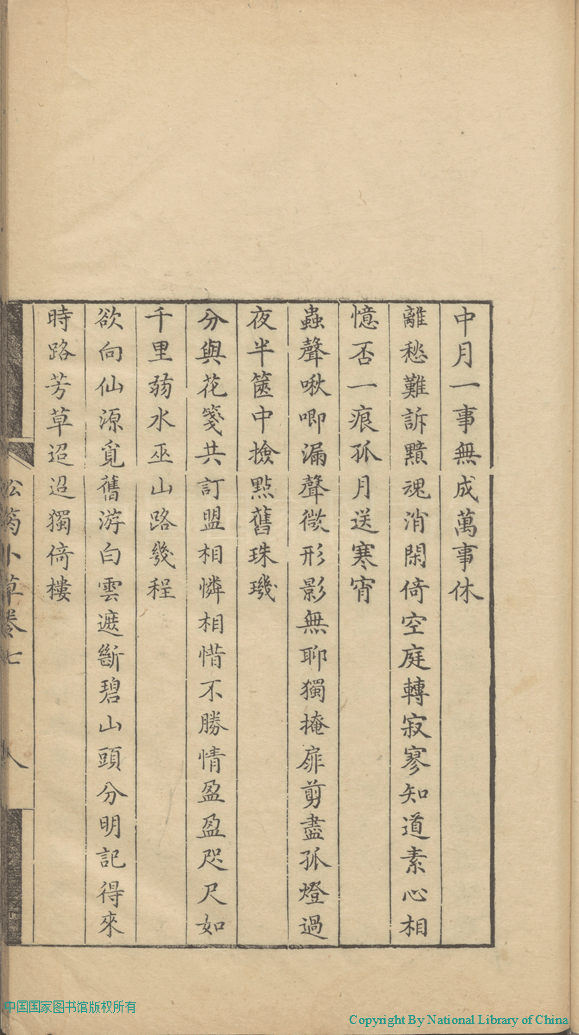 中月一事無成萬事休
離愁難訴黯魂消閑倚空庭轉寂寥知道素心相
憶否一痕孤月送寒宵
蟲聲啾唧漏聲微形影無聊獨掩扉剪盡孤燈過
夜半篋中撿點舊珠璣
分與花箋共訂盟相憐相惜不勝情盈盈咫尺如
千里弱水巫山路幾程
欲向仙源覓舊游白雲遮斷碧山頭分明記得來
時路芳草迢迢獨倚樓
小草卷七
八
中国国家图书馆版权所有
Copyright By National Library of China